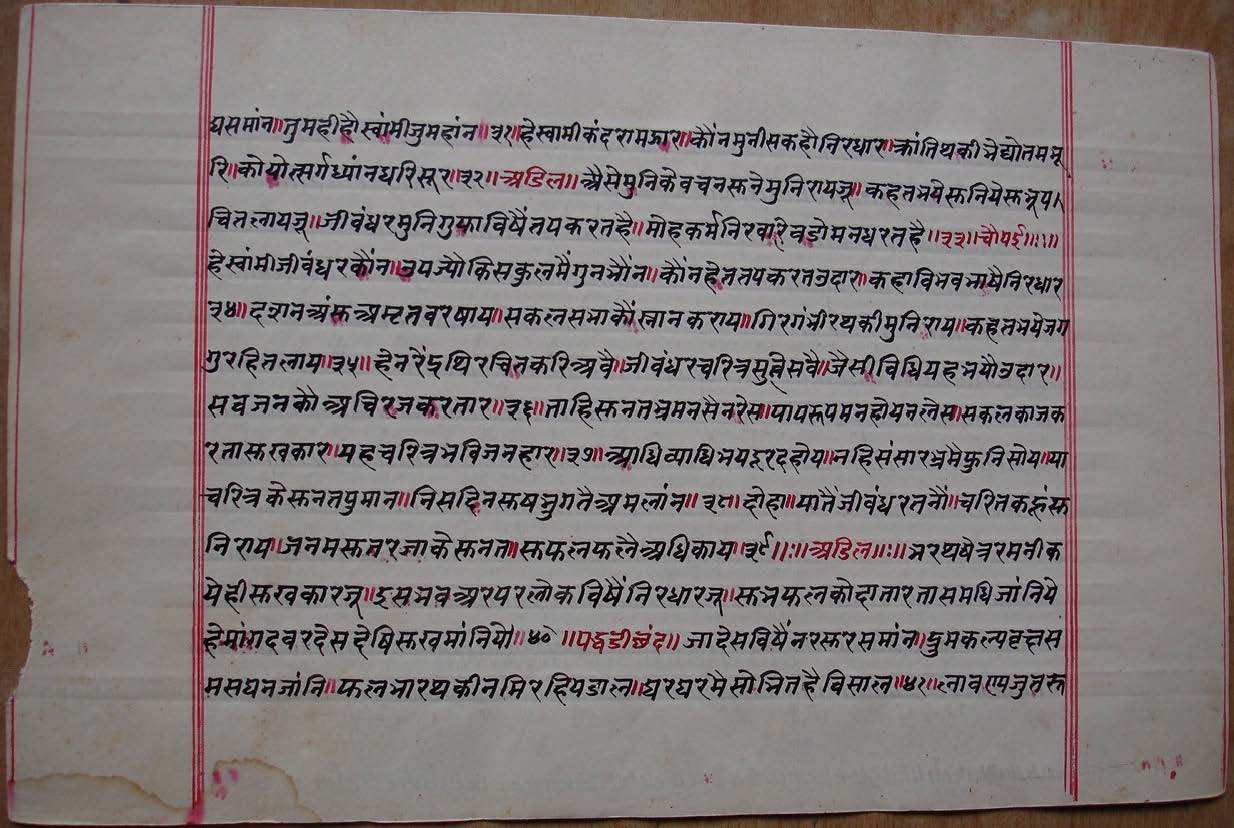 घसमांन॥तुमहीहौस्वांमीजुमहांन॥३१॥हेस्वामीकंदरामझार॥कौंनमुनीसकहौनिरधार॥क्रांतिथकीभेद्योतमभू
रि॥कोयोत्सर्गध्यांनधरिसूर॥३२॥अडिल॥अैसेमुनिकेवचनसुनेमुनिरायजू॥कहतभयेसुनियेसुभूप।
चितलायजू॥जीवंधरमुनिगुफाविषैंतपकरतहै॥मोहकर्मनिरवारेवडोमनधरतहै॥३३॥चौपई॥॥
हेस्वांमीजीवंधरकौंन॥उपज्यौकिसकुलमैंगुनभौंन॥कौंनहेततपकरतउदार॥कहाविभवभाषैनिरधार
३४॥दशनअंसुअमृतवरषाय॥सकलसभाकौंस्नानकराय॥गिरगंभीरथकीमुनिराय॥कहतभयेजग
गुरहितलाय॥३५॥हेनरेंद्रथिरचितकरिअवै॥जीवंधरचरित्रसुलेसवै॥जैसीविधियहभयौउदार॥
सवजनकौअचिरजकरतार॥३६॥ताहिसुनतभ्रमनसैनरेस॥पापरूपमनहोयनलेस॥सकलकाजक
रतासुखकार॥यहचरित्रभविजनहार॥३७॥आधिव्याधिभयदूरदहोय॥नहिसंसारभ्रमैफुनिसोय॥या
चरित्रकेसुनतपुमान॥निसदिनसुषभुगतैअमलांन॥३८॥दोहा॥यातैंजीवंधरतनौं॥चरितकहूंसु
निराय॥जनमसुतरजाकेसुनत॥सुफलफलैअधिकाय॥३९॥ः॥अडिल॥ः॥भरथषेत्ररमनीक
येहीसुखकारजू॥इसभवअरपरलोकविषैंनिरधारजू॥सुभफलकोदातारतासमधिजांनिये
हेमांगदवरदेसदेषिसुखमांनियो॥४०॥पद्धडीछंद॥जादेसविषैंनरसुरसमांन॥द्रुमकल्पवृक्षस
मसघनजांनि॥फलभारथकीनमिरहियडाल॥घरघरमैसोभितहैविसाल॥४१॥लावण्यजुतरू